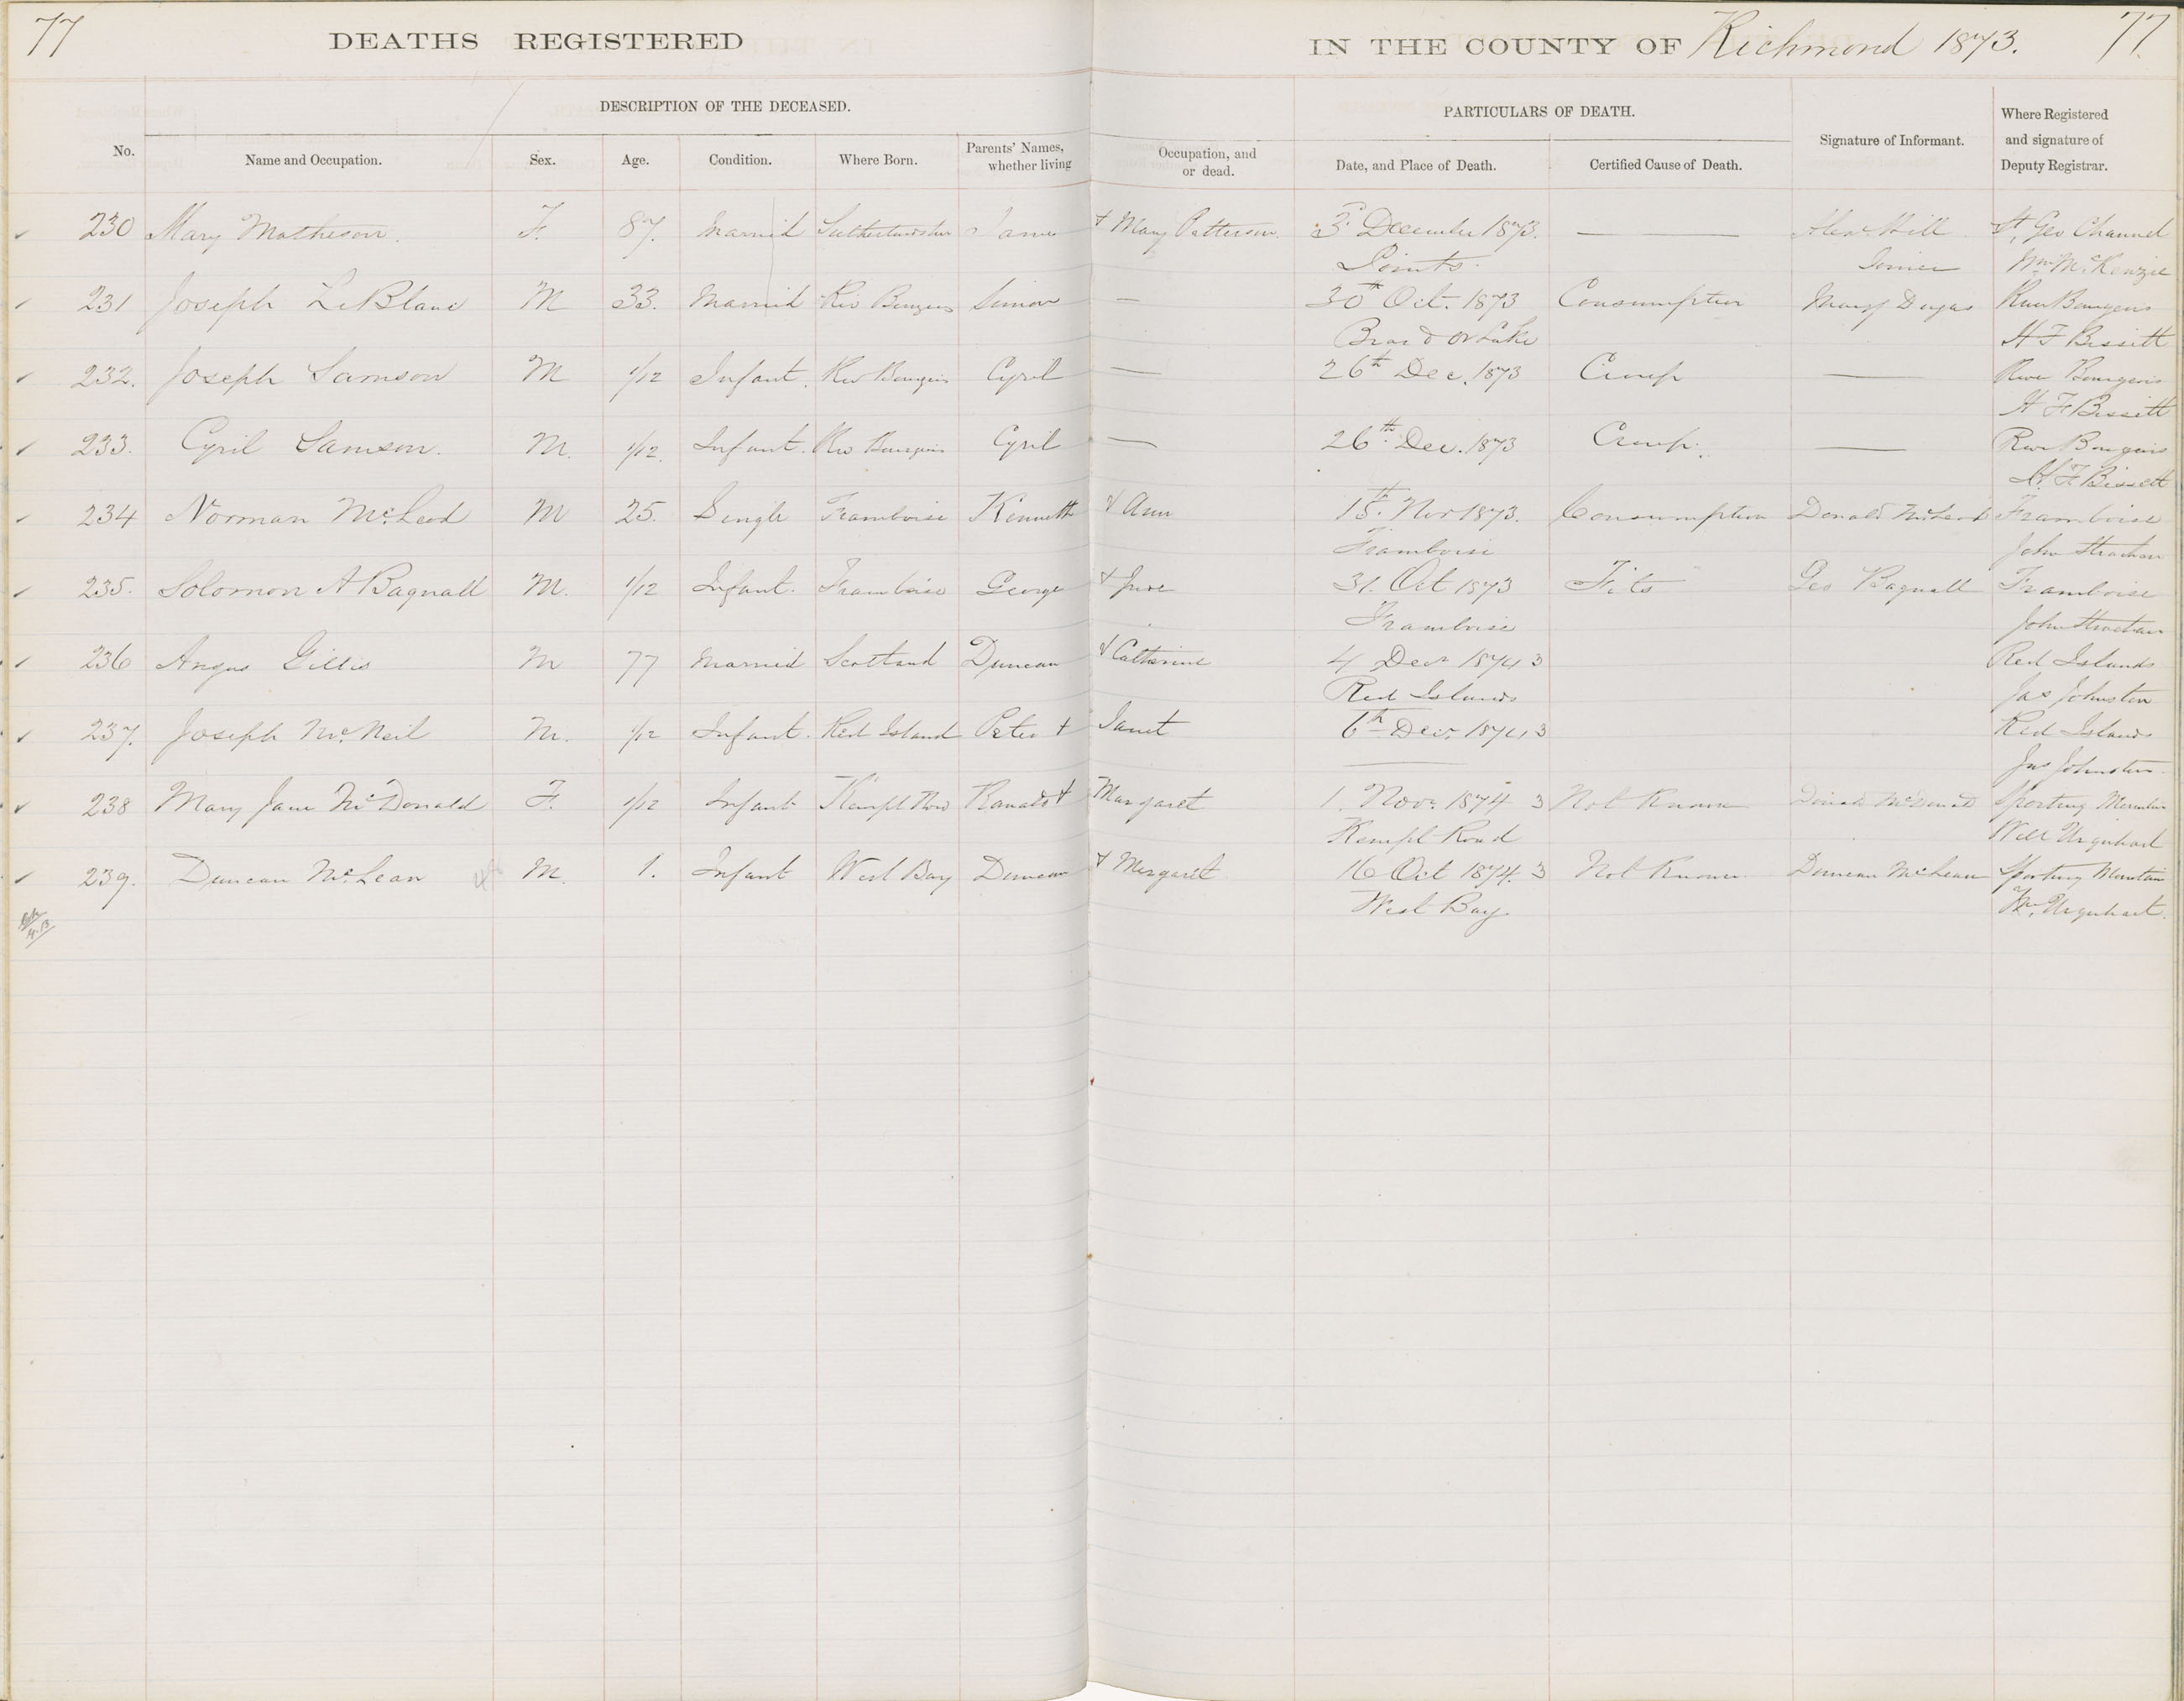 77 DEATHS REGISTERED IN THE COUNTY OF Richmond 1873. 77
DESCRIPTION OF THE DECEASED. PARTICULARS OF DEATH.
No. Name and Occupation. Sex. Age. Condition. Where Born. Parents' Names, whether living Occupation, and or dead. Date, and Place of Death. Certified Cause of Death. Signature of Informant. Where Registered and signature of Deputy Registrar.
230 Mary Matheson. F. 87. Married James & Mary Patterson. 3 December 1873. — Alex Hill St. Geo Channel
Points. Wm McKenzie
231 Joseph LeBlanc M 33. Married Riv Bourgeois Simon — 30th Oct. 1873 Consumption Dugas River Bourgeois
Bras d'or Lake H F Bissett
232. Joseph Samson M 1/12 Infant. Riv Bourgeois Cyril — 26th Dec. 1873 Croup — River Bourgeois
H F Bissett
233. Cyril Samson. M. 1/12. Infant. Riv Bourgeois Cyril — 26th Dec. 1873 Croup. — River Bourgeois
H. F Bissett
234 Norman McLeod M 25. Single Framboise Kenneth & Ann 15th Nov 1873. Consumption Donald McLeod Framboise
Framboise John Strachan
235. Solomon A Bagnall M. 1/12 Infant. Framboise George & 31. Oct 1873 Fits Geo Bagnall Framboise
Framboise John Strachan
236 Angus Gillis M 77 Married Scotland Duncan & Catherine 4 Decr 1874 3 Red Islands
Red Islands Jas Johnston
237. Joseph McNeil M. 1/12 Infant. Red Island Peter & Janet 6th Decr 1874 3 Red Islands
— Jas Johnston
238 Mary Jane McDonald F. 1/12 Infant Kempt Road Ranald & Margaret 1. Novr. 1874 3 Not Known Donald McDonald Sporting Mountain
Kempt Road Will Urquhart
239. Duncan McLean M. 1. Infant West Bay Duncan & Margaret 16 Oct 1874. 3 Not Known Duncan McLean Sporting Mountain
West Bay Wm. Urquhart.